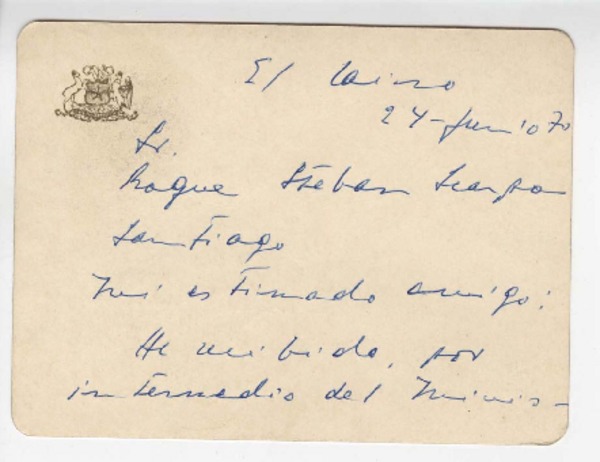 El Cairo
24-Junio 70
Sr.
Roque Esteban Scarpa
Santiago
Mi estimado amigo:
He recibido, por
intermedio del Minis-